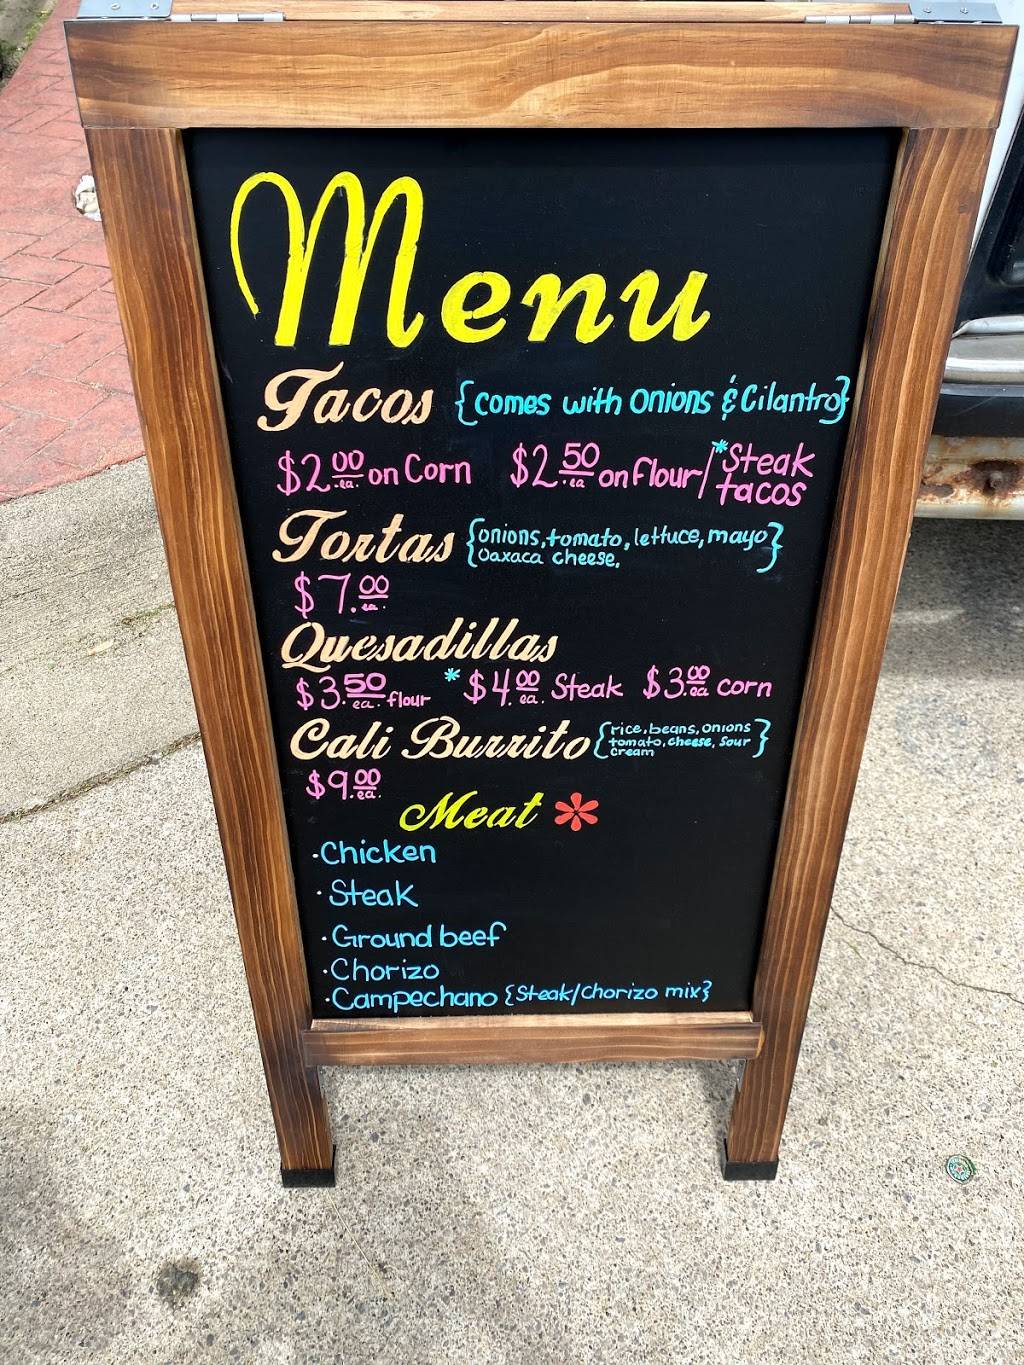 Menu
Tacos {comes with onions & Cilantro}
$2.00 ea. on Corn $2.50 ea. on flour/*Steak tacos
Tortas {onions, tomato, lettuce, mayo
Oaxaca cheese.}
$7.00 ea.
Quesadillas
$3.50 ea. flour *$4.00 ea. Steak $3.00 ea corn
Cali Burrito {rice, beans, onions
tomato, cheese, sour
cream}
$9.00 ea.
Meat *
·Chicken
·Steak
·Ground beef
·Chorizo
·Campechano {Steak/Chorizo mix}